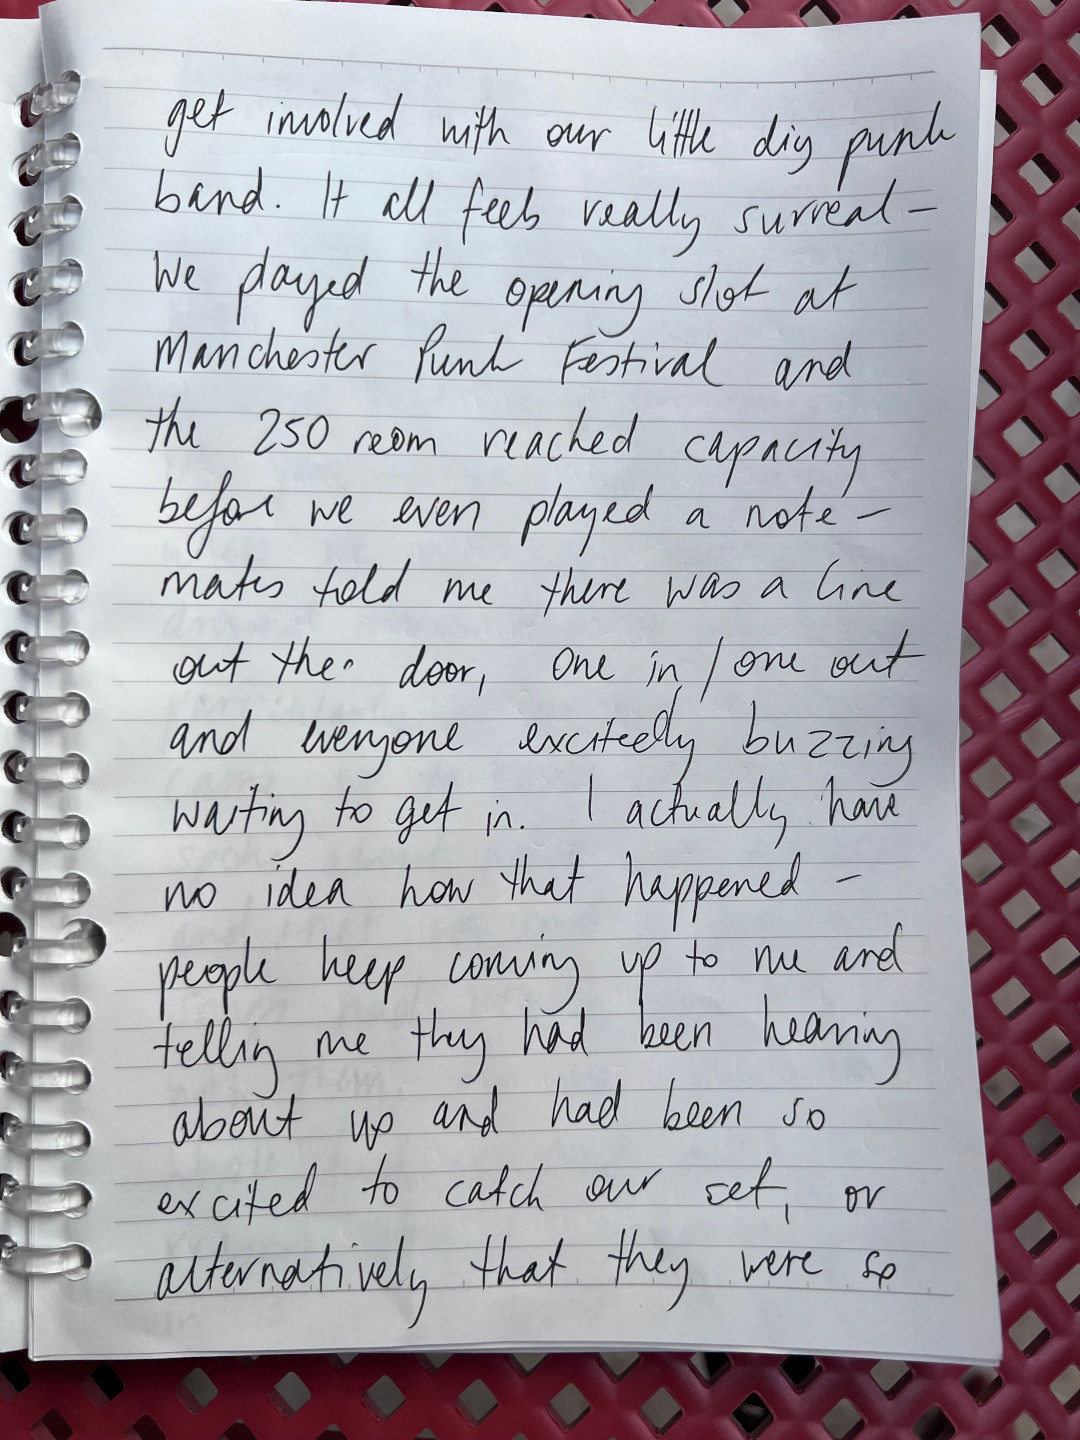 get involved with our little diy punk
band. It all feels really surreal –
We played the opening slot at
Manchester Punk Festival and
the 250 room reached capacity
before we even played a note –
mates told me there was a line
out the door, one in / one out
and everyone excitedly buzzing
waiting to get in. I actually have
no idea how that happened –
people keep coming up to me and
telling me they had been hearing
about us and had been so
excited to catch our set, or
alternatively that they were so